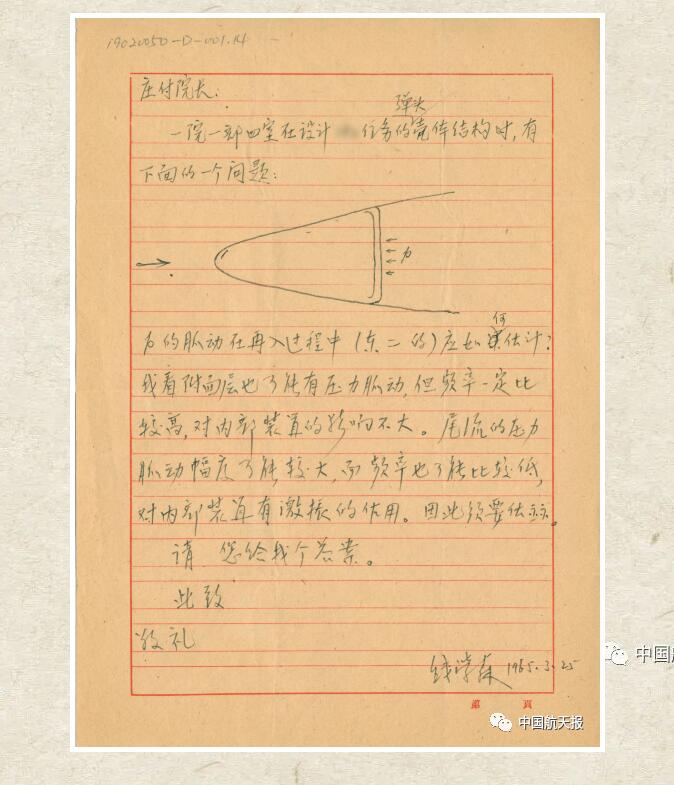 19020050-D-001.14
庄付院长:
弹头
一院一部四室在设计 任务的壳体结构时,有
下面的一个问题:
p
何
p的脉动在再入过程中(东二的)应如估计?
我看附面层也可能有压力脉动,但频率一定比
较高,对内部装置的影响不大。尾流的压力
脉动幅度可能较大,而频率也可能比较低,
对内部装置有激振的作用。因此须要估
请 您给找个答案。
此致
敬礼
钱学森 1965.3.25
第 頁
中国航天报
中国航